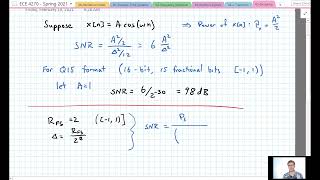 ECE 4270 - Spring 2021
Suppose x[n] = A cos(ωn) ⇒ Power of x[n] : P_x = A²/2
SNR = (A²/2)/(Δ²/12) = 6 A²/Δ²
For Q15 format (16-bit, 15 fractional bits [-1, 1))
let A=1 SNR = 6/2^-30 = 98 dB
R_FS = 2 ([-1, 1)] SNR = P_x / (
Δ = R_FS/2^B